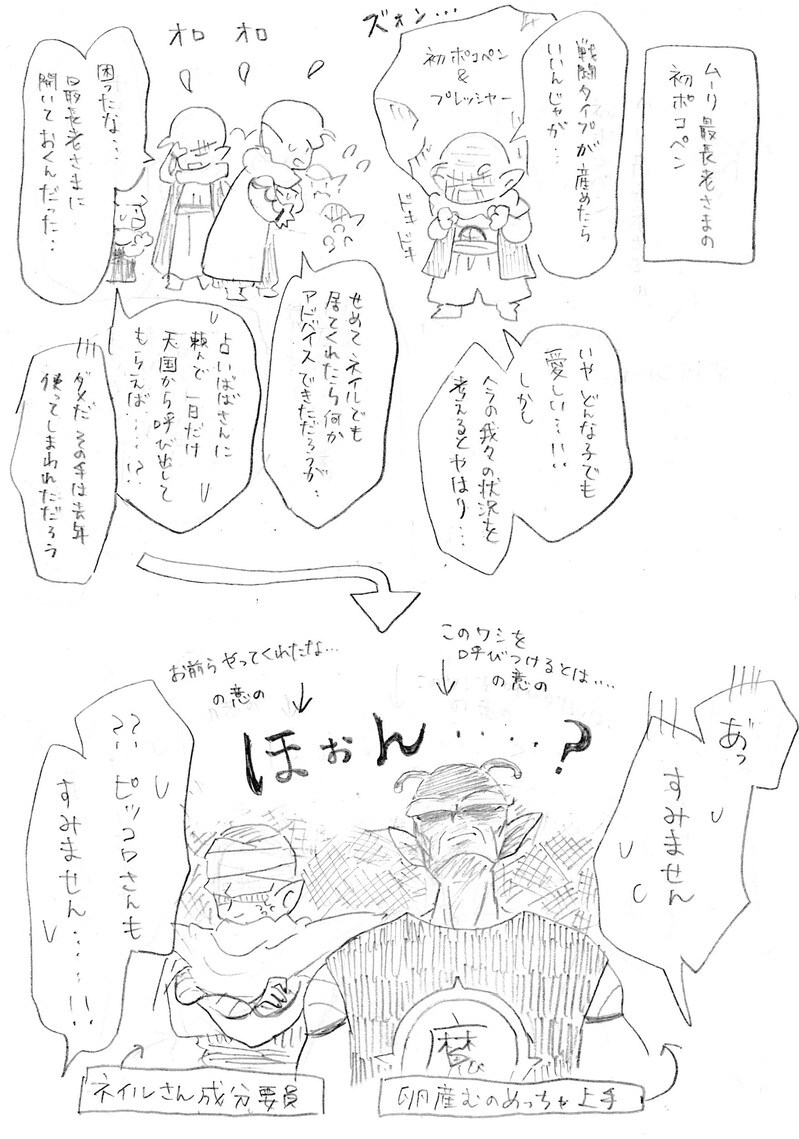 ムーリ最長老さまの
初ポコペン
ズォン・・・
初ポコペン
&
プレッシャー
戦闘タイプが産めたら
いいんじゃが・・・
ドキドキ
いやどんな子でも
愛しい・・!!
しかし
今の我々の状況を
考えるとやはり・・・
オロ
オロ
困ったな・・・
最長老さまに
聞いておくんだった・・
せめてネイルでも
居てくれたら何か
アドバイスできただろうが・
占いばばさんに
頼んで一日だけ
天国から呼び出して
もらえば・・・・!?
ダメだその手は去年
使ってしまわれただろう
このワシを
呼びつけるとは・・・・
の意の
お前らやってくれたな…
の意の
ほぉん・・・・・?
あ゛っ
すみません
??ピッコロさんも
すみません・・・・!!
魔
卵産むのめっちゃ上手
ネイルさん成分要員